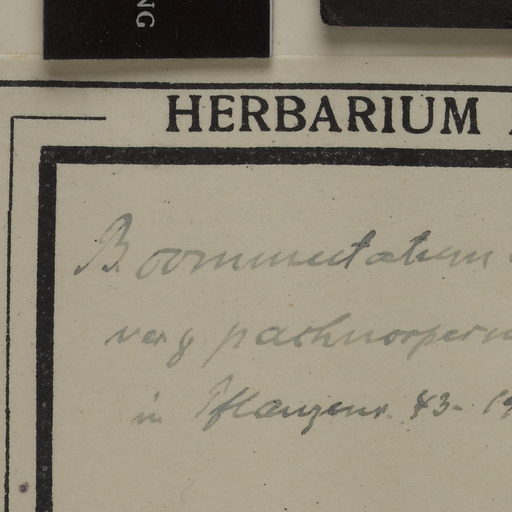 NG
HERBARIUM
B. oommutatum
var γ pachnosperm
in Pflanzenr. 43.